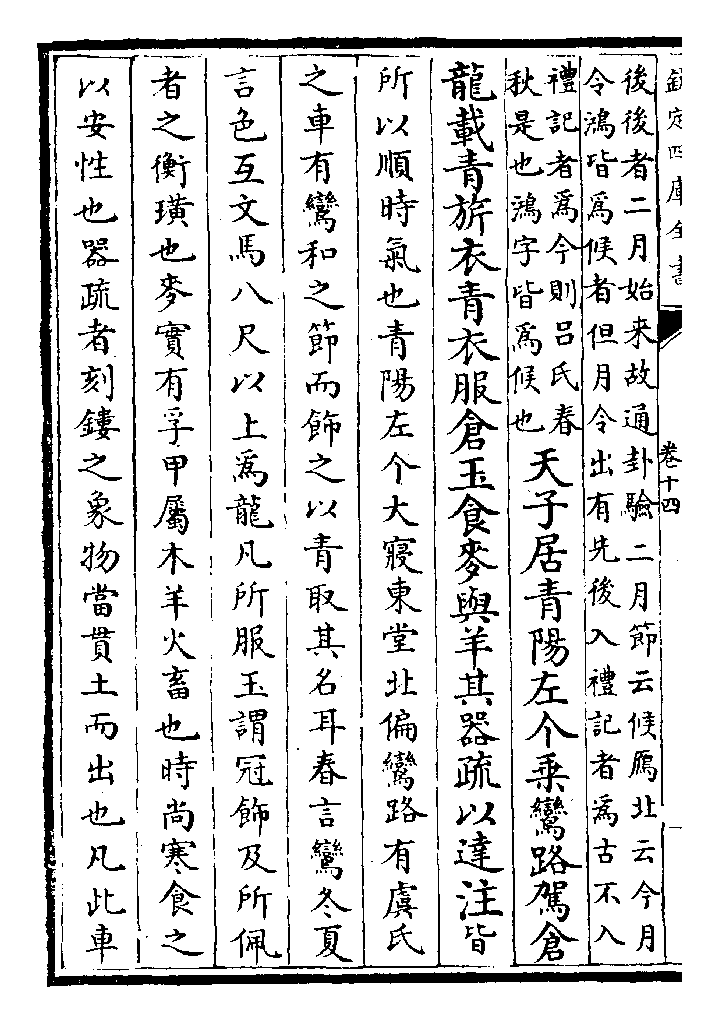 欽定四庫全書
卷十四
後後者二月始来故通卦驗二月節云候鴈北云今月
令鴻皆爲候者但月令出有先後入禮記者爲古不入
禮記者爲今則呂氏春
秋是也鴻字皆爲候也
天子居青陽左个乗鸞路駕倉
龍載青旂衣青衣服倉玉食麥與羊其器疏以達注皆
所以順時氣也青陽左个大寢東堂北偏鸞路有虞氏
之車有鸞和之節而飾之以青取其名耳春言鸞冬夏
言色互文馬八尺以上爲龍凡所服玉謂冠飾及所佩
者之衡璜也麥實有孚甲屬木羊火畜也時尚寒食之
以安性也器疏者刻鏤之象物當貫土而出也凡此車